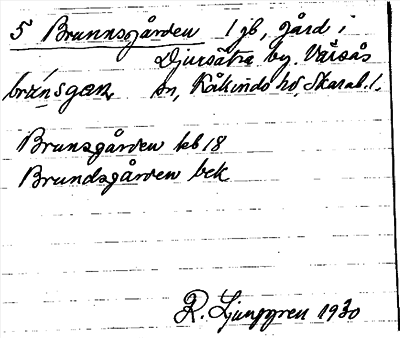 5 Brunnsgården 1 jb, gård i
Djursätra by. Varsås
brùnsgæɳ sn, Kåkinds hd, Skarab. l.
Brunsgården kb 18
Brundsgården bek
R. Ljunggren 1930